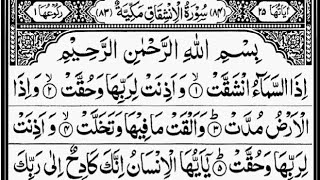 اٰيَاتُهَا ٢٥ (٨٤) سُوْرَةُ الْاِنْشِقَاقِ مَكِّيَّةٌ (٨٣) رُكُوْعُهَا ١
بِسْمِ اللّٰهِ الرَّحْمٰنِ الرَّحِيْمِ
اِذَا السَّمَآءُ انْشَقَّتْ ۙ﴿١﴾ وَاَذِنَتْ لِرَبِّهَا وَحُقَّتْ ۙ﴿٢﴾ وَاِذَا
الْاَرْضُ مُدَّتْ ۙ﴿٣﴾ وَاَلْقَتْ مَا فِيْهَا وَتَخَلَّتْ ۙ﴿٤﴾ وَاَذِنَتْ
لِرَبِّهَا وَحُقَّتْ ؕ﴿٥﴾ يٰۤاَيُّهَا الْاِنْسَانُ اِنَّكَ كَادِحٌ اِلٰى رَبِّكَ